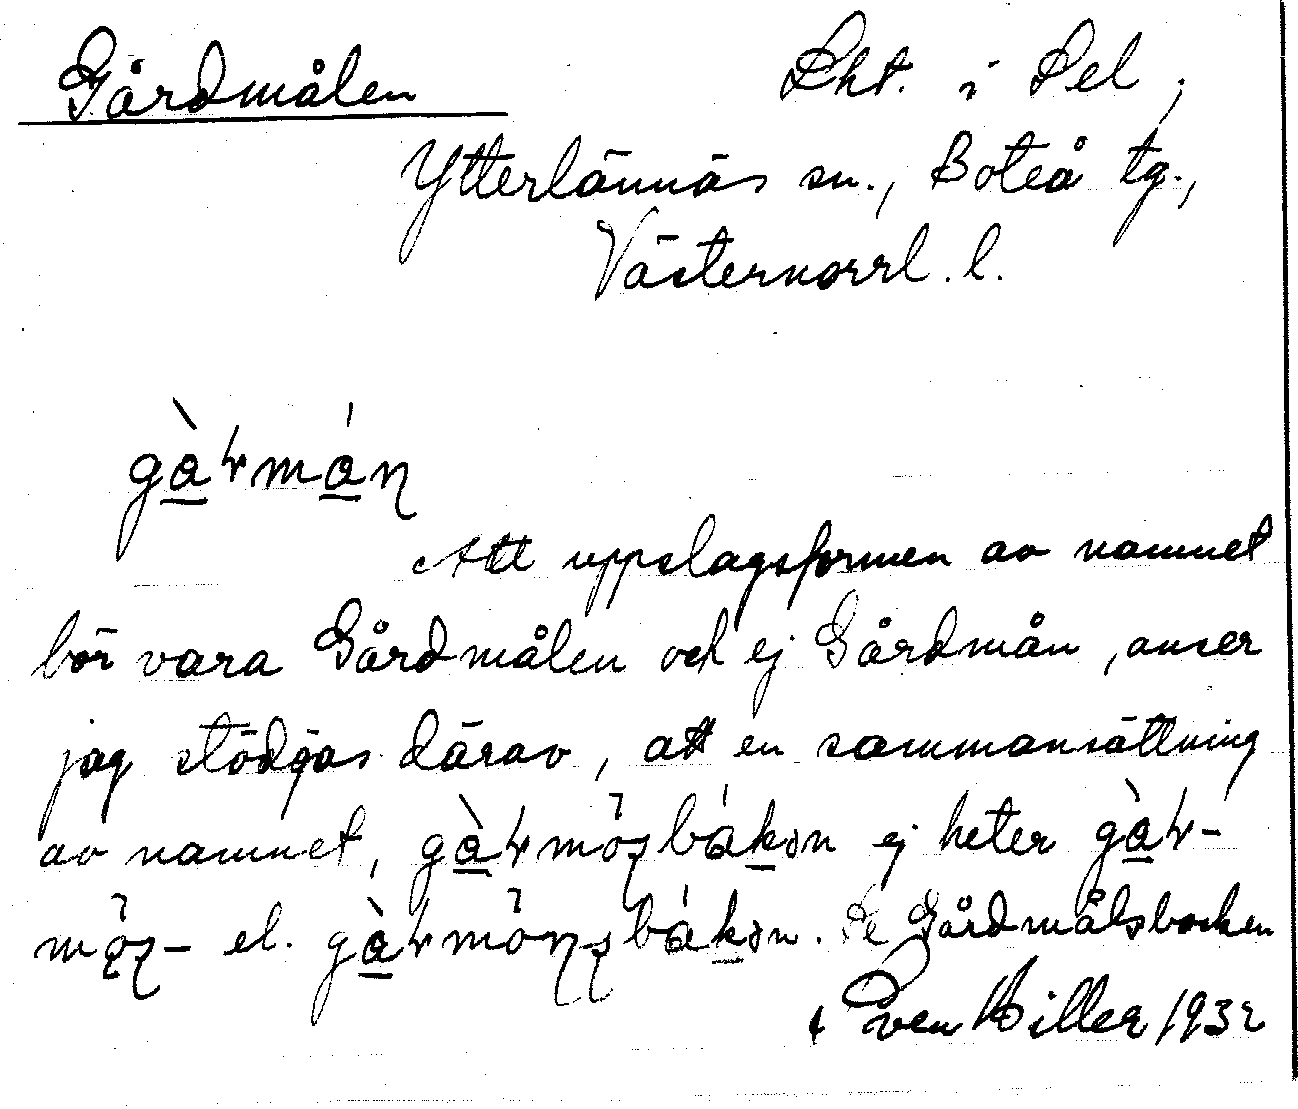 Gårdmålen
Lht. i Sel,
Ytterlännäs sn., Boteå tg.,
Västernorrl. l.
gàrmán
Att uppslagsformen av namnet
bör vara Gårdmålen och ej Gårdmån, anser
jag stödjas därav, att en sammansättning
av namnet, ej heter
el. Se Gårdmålsbocken
Sven Hiller 1932